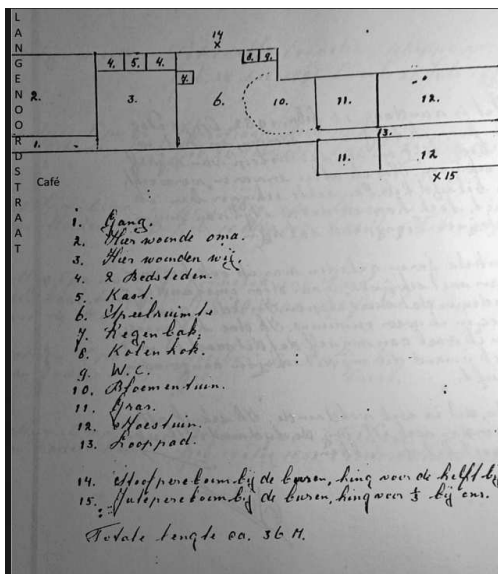 LANGENOORDSTRAAT
14
x
4. 5. 4. 8. 9.
7.
2. 3. 6. 10. 11. 12.
13.
1. 11. 12
x 15
Café
1. Gang.
2. Hier woonde oma.
3. Hier woonden wij.
4. 2 Bedsteden.
5. Kast.
6. Speelruimte
7. Regenbak.
8. Kolenhok.
9. W.C.
10. Bloementuin.
11. Gras.
12. Moestuin.
13. Looppad.
14. Stoofpereboom bij de buren, hing voor de helft bij
15. Jutepereboom bij de buren, hing voor 1/3 bij ons.
Totale lengte ca. 36 M.